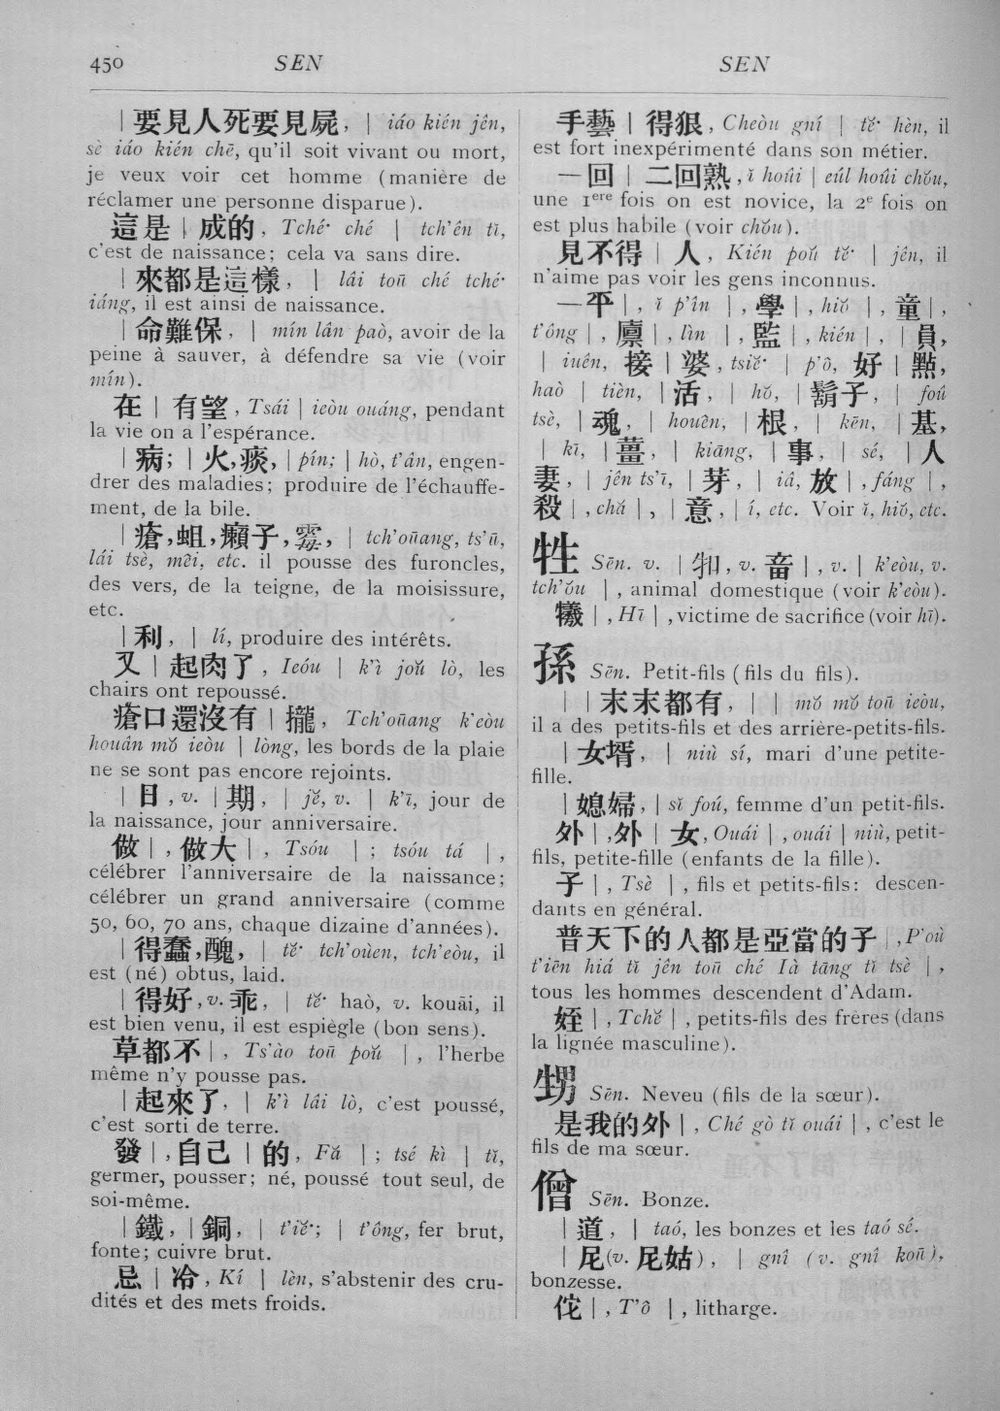 450 SEN SEN
| 要見人死要見屍, | iáo kién jên,
sè iáo kién chē, qu'il soit vivant ou mort,
je veux voir cet homme (manière de
réclamer une personne disparue).
這是 | 成的, Tché· ché | tch'ên tĭ,
c'est de naissance; cela va sans dire.
| 來都是這樣, | lâi toū ché tché·
iáng, il est ainsi de naissance.
| 命難保, | mín lân paò, avoir de la
peine à sauver, à défendre sa vie (voir
mín).
在 | 有望, Tsái | ieòu ouáng, pendant
la vie on a l'espérance.
| 病; | 火,痰, | pín; | hò, t'ân, engen-
drer des maladies; produire de l'échauffe-
ment, de la bile.
| 瘡,蛆,癩子,霉, | tch'oūang, ts'ū,
lái tsè, mêi, etc. il pousse des furoncles,
des vers, de la teigne, de la moisissure,
etc.
| 利, | lí, produire des intérêts.
又 | 起肉了, Ieóu | k'ì joŭ lò, les
chairs ont repoussé.
瘡口還沒有 | 攏, Tch'oūang k'eòu
houân mŏ ieòu | lòng, les bords de la plaie
ne se sont pas encore rejoints.
| 日, v. | 期, | jĕ, v. | k'ī, jour de
la naissance, jour anniversaire.
做 | , 做大 | , Tsóu | ; tsóu tá | ,
célébrer l'anniversaire de la naissance;
célébrer un grand anniversaire (comme
50, 60, 70 ans, chaque dizaine d'années).
| 得蠢,醜, | tĕ· tch'oùen, tch'eòu, il
est (né) obtus, laid.
| 得好, v. 乖, | tĕ· haò, v. kouāi, il
est bien venu, il est espiègle (bon sens).
草都不 | , Ts'ào toū poŭ | , l'herbe
même n'y pousse pas.
| 起來了, | k'ì lâi lò, c'est poussé,
c'est sorti de terre.
發 | ,自己 | 的, Fă | ; tsé kì | tĭ,
germer, pousser; né, poussé tout seul, de
soi-même.
| 鐵, | 銅, | t'iĕ·; | t'ông, fer brut,
fonte; cuivre brut.
忌 | 冷, Kí | lèn, s'abstenir des cru-
dités et des mets froids.
手藝 | 得狠, Cheòu gní | tĕ· hèn, il
est fort inexpérimenté dans son métier.
一回 | 二回熟, ĭ hoûi | eúl hoûi chŏu,
une 1ere fois on est novice, la 2e fois on
est plus habile (voir chŏu).
見不得 | 人, Kién poŭ tĕ· | jên, il
n'aime pas voir les gens inconnus.
一平 | , ĭ p'în | , 學 | , hiŏ | , 童 | ,
t'ông | , 廪 | , lìn | , 監 | , kién | , | 員,
| iuên, 接 | 婆, tsiĕ· | p'ô, 好 | 點,
haò | tièn, | 活, | hŏ, | 鬍子, | foû
tsè, | 魂, | houên, | 根, | kēn, | 基,
| kī, | 薑, | kiāng, | 事, | sé, | 人
妻, | jên ts'ī, | 芽, | iâ, 放 | , fáng | ,
殺 | , chă | , | 意, | í, etc. Voir ĭ, hiŏ, etc.
牲 Sēn. v. | 牲口, v. 畜 | , v. | k'eòu, v.
tch'ŏu | , animal domestique (voir k'eòu).
犧 | , Hī | , victime de sacrifice (voir hī).
孫 Sēn. Petit-fils (fils du fils).
| | 末末都有, | | mŏ mŏ toū ieòu,
il a des petits-fils et des arrière-petits-fils.
| 女壻, | niù sí, mari d'une petite-
fille.
| 媳婦, | sĭ foú, femme d'un petit-fils.
外 | ,外 | 女, Ouái | , ouái | niù, petit-
fils, petite-fille (enfants de la fille).
子 | , Tsè | , fils et petits-fils: descen-
dants en général.
普天下的人都是亞當的子 | , P'où
t'iēn hiá tĭ jên toū ché Ià tāng tĭ tsè | ,
tous les hommes descendent d'Adam.
姪 | , Tchĕ | , petits-fils des frères (dans
la lignée masculine).
甥 Sēn. Neveu (fils de la sœur).
是我的外 | , Ché gò tĭ ouái | , c'est le
fils de ma sœur.
僧 Sēn. Bonze.
| 道, | taó, les bonzes et les taó sé.
| 尼(v. 尼姑), | gnî (v. gnî koū),
bonzesse.
佗 | , T'ô | , litharge.